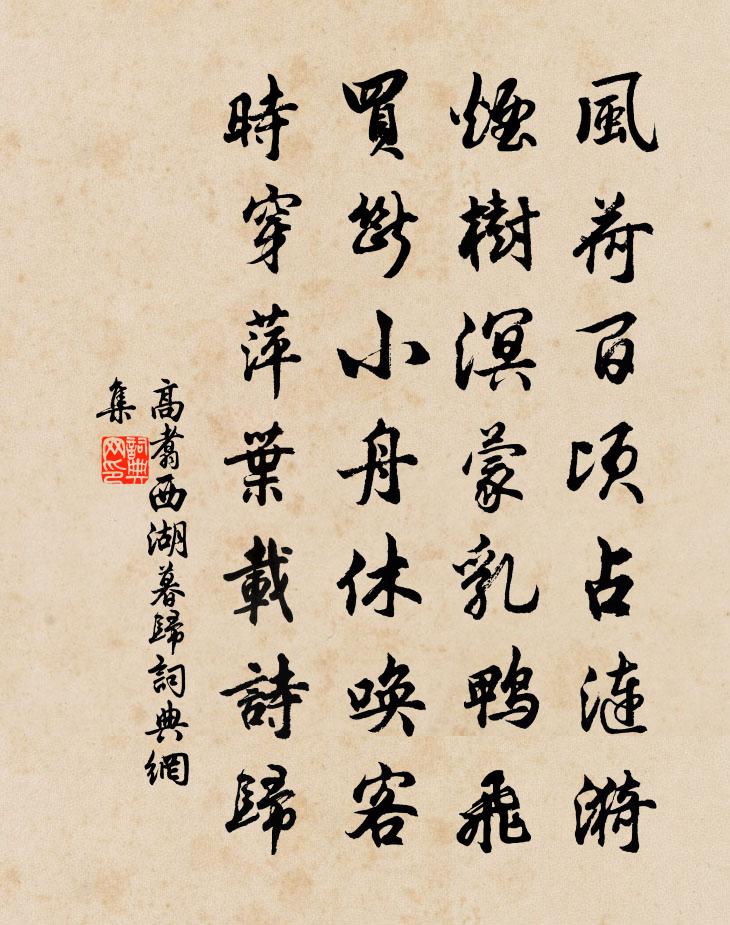 風荷百頃占漣漪
煙樹溟蒙乳鴨飛
買斷小舟休喚客
時穿萍葉載詩歸
高翥西湖暮歸詞典網
集
詞典
网印